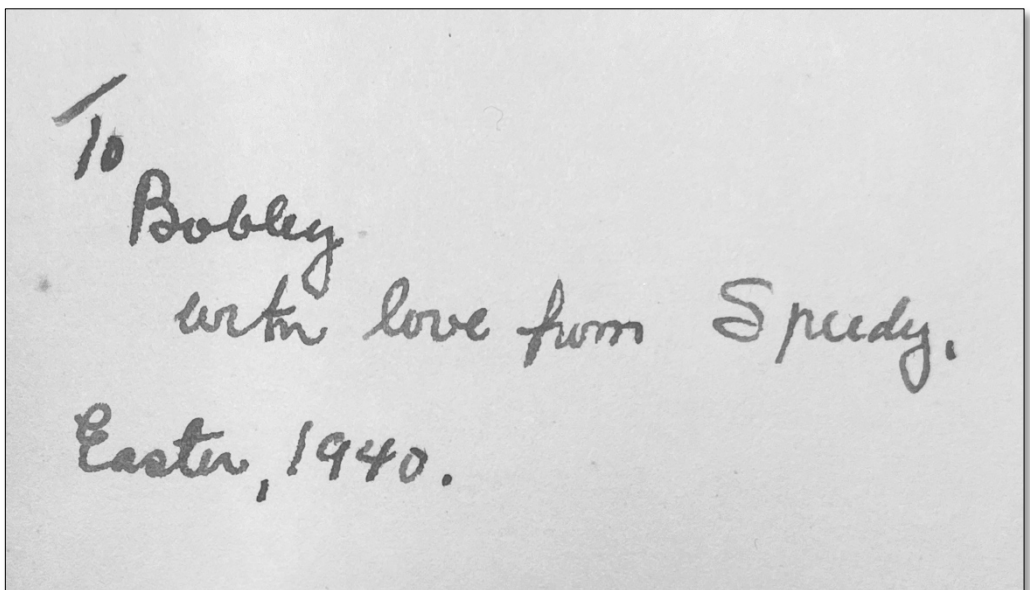 To
Bobley
with love from Speedy.
Easter, 1940.